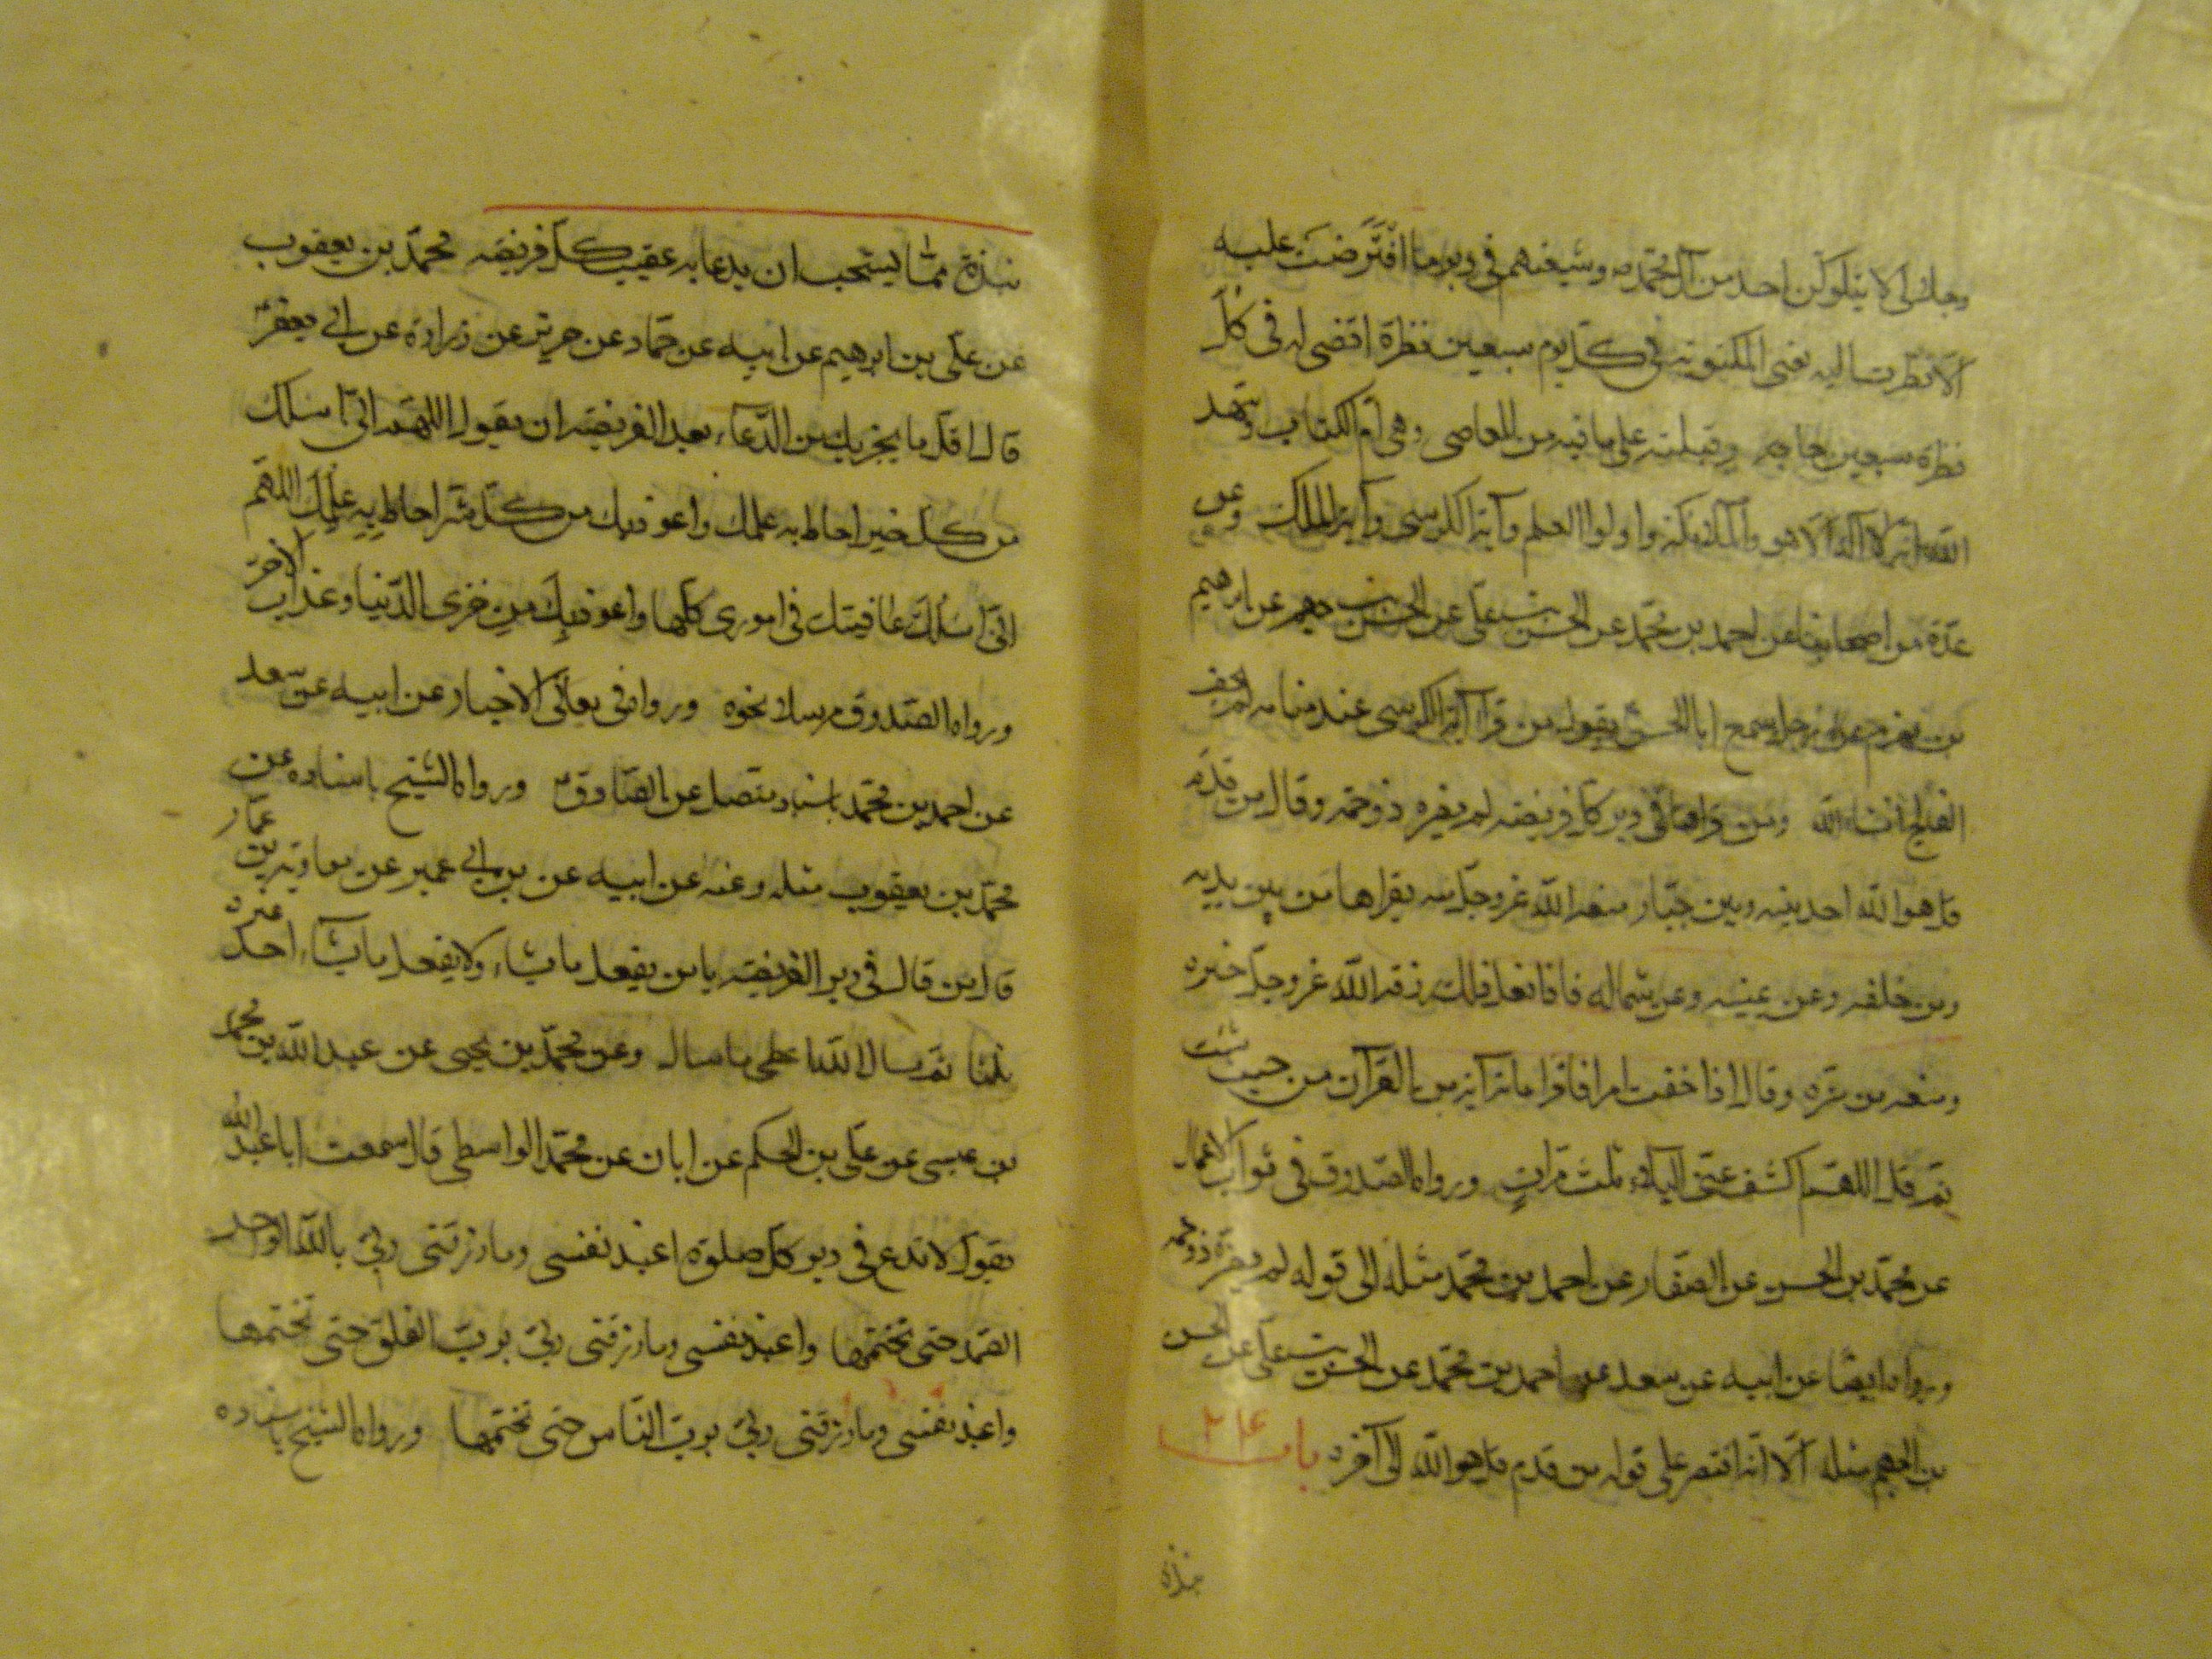 وجلالي لا يتلوكن احد من آل محمد وشيعتهم في دبر ما افترضت عليه
الا نظرت اليه بعيني المكنونة في كل يوم سبعين نظرة اقضي له في كل
نظرة سبعين حاجة وقبلته على ما فيه من المعاصي وهي ام الكتاب وشهد
الله انه لا اله الا هو والملائكة واولوا العلم وآية الكرسي وآية الملك وعن
عدة من اصحابنا عن احمد بن محمد عن الحسن بن علي عن الحسن بن جهم عن ابرهيم
بن مهزم عن رجل سمع ابا الحسن يقول من قرا آية الكرسي عند منامه لم يخف
الفالج انشاء الله ومن قراها في دبر كل فريضة لم يضره ذو حمة وقال من قدم
قل هو الله احد بينه وبين جبار منعه الله عز وجل منه يقراها من بين يديه
ومن خلفه وعن يمينه وعن شماله فاذا فعل ذلك رزقه الله عز وجل خيره
ومنعه من شره وقال اذا خفت امرا فاقرا مائة آية من القرآن من حيث شئت
ثم قل اللهم اكشف عني البلاء ثلث مرات ورواه الصدوق في ثواب الاعمال
عن محمد بن الحسن عن الصفار عن احمد بن محمد مثله الى قوله لم يضره ذو حمة
ورواه ايضا عن ابيه عن سعد عن احمد بن محمد عن الحسن بن علي عن الحسن
بن الجهم مثله الا انه اقتصر على قوله من قدم قل هو الله الى آخره باب ٢٤
نبذة
نبذة مما يستحب ان يدعا به عقيب كل فريضة محمد بن يعقوب
عن علي بن ابرهيم عن ابيه عن حماد عن حريز عن زرارة عن ابي جعفر
قال اقل ما يجزيك من الدعاء بعد الفريضة ان يقول اللهم اني اسلك
من كل خير احاط به علمك واعوذ بك من كل شر احاط به علمك اللهم
اني اسلك عافيتك في اموري كلها واعوذ بك من خزي الدنيا وعذاب الآخرة
ورواه الصدوق مرسلا نحوه ورواه في معاني الاخبار عن ابيه عن سعد
عن احمد بن محمد باسناد متصل عن الصادق ورواه الشيخ باسناده عن
محمد بن يعقوب مثله وعنه عن ابيه عن بن ابي عمير عن معاوية بن عمار
قال من قال في دبر الفريضة يا من يفعل ما يشاء ولا يفعل ما يشاء احد غيره
ثلثا ثم سال الله اعطي ما سال وعن محمد بن يحيى عن عبد الله بن محمد
بن عيسى عن علي بن الحكم عن ابان عن محمد الواسطي قال سمعت ابا عبد الله
يقول لا تدع في دبر كل صلوة اعيذ نفسي وما رزقني ربي بالله الواحد
الصمد حتى تختمها واعيذ نفسي وما رزقني ربي برب الفلق حتى تختمها
واعيذ نفسي وما رزقني ربي برب الناس حتى تختمها ورواه الشيخ باسناده